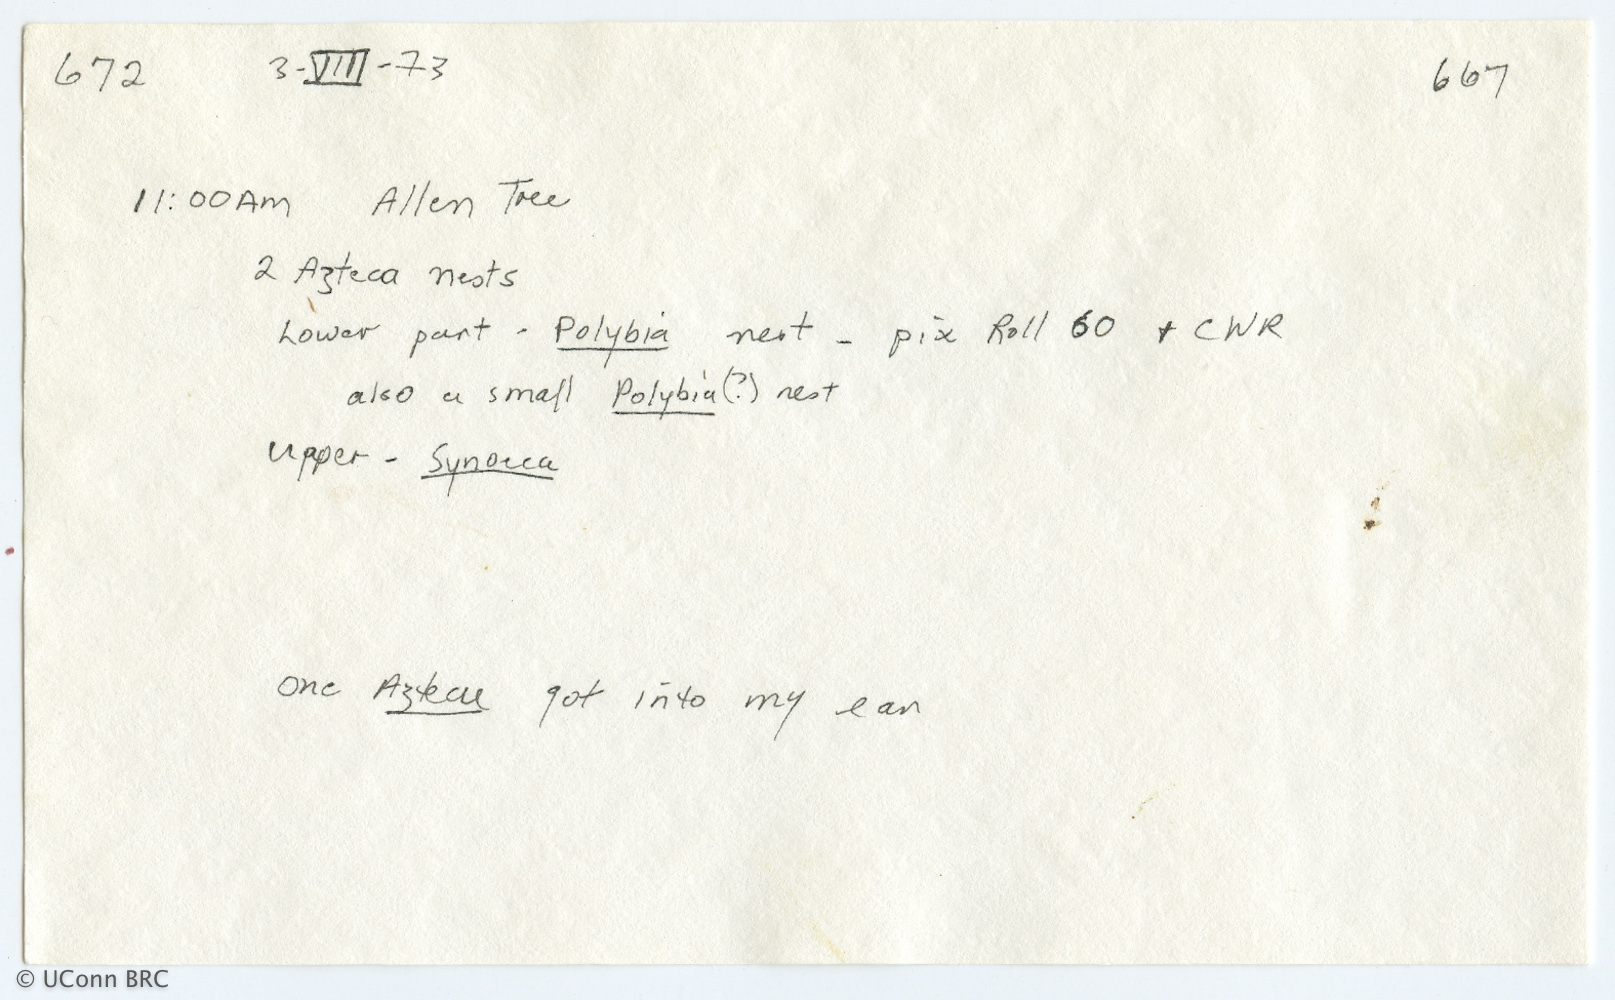 672 3-VIII-73 667
11:00Am Allen Tree
2 Azteca nests
Lower part - Polybia nest - pix Roll 60 + CWR
also a small Polybia(?) nest
Upper - Synoeca
One Azteca got into my ear
© UConn BRC